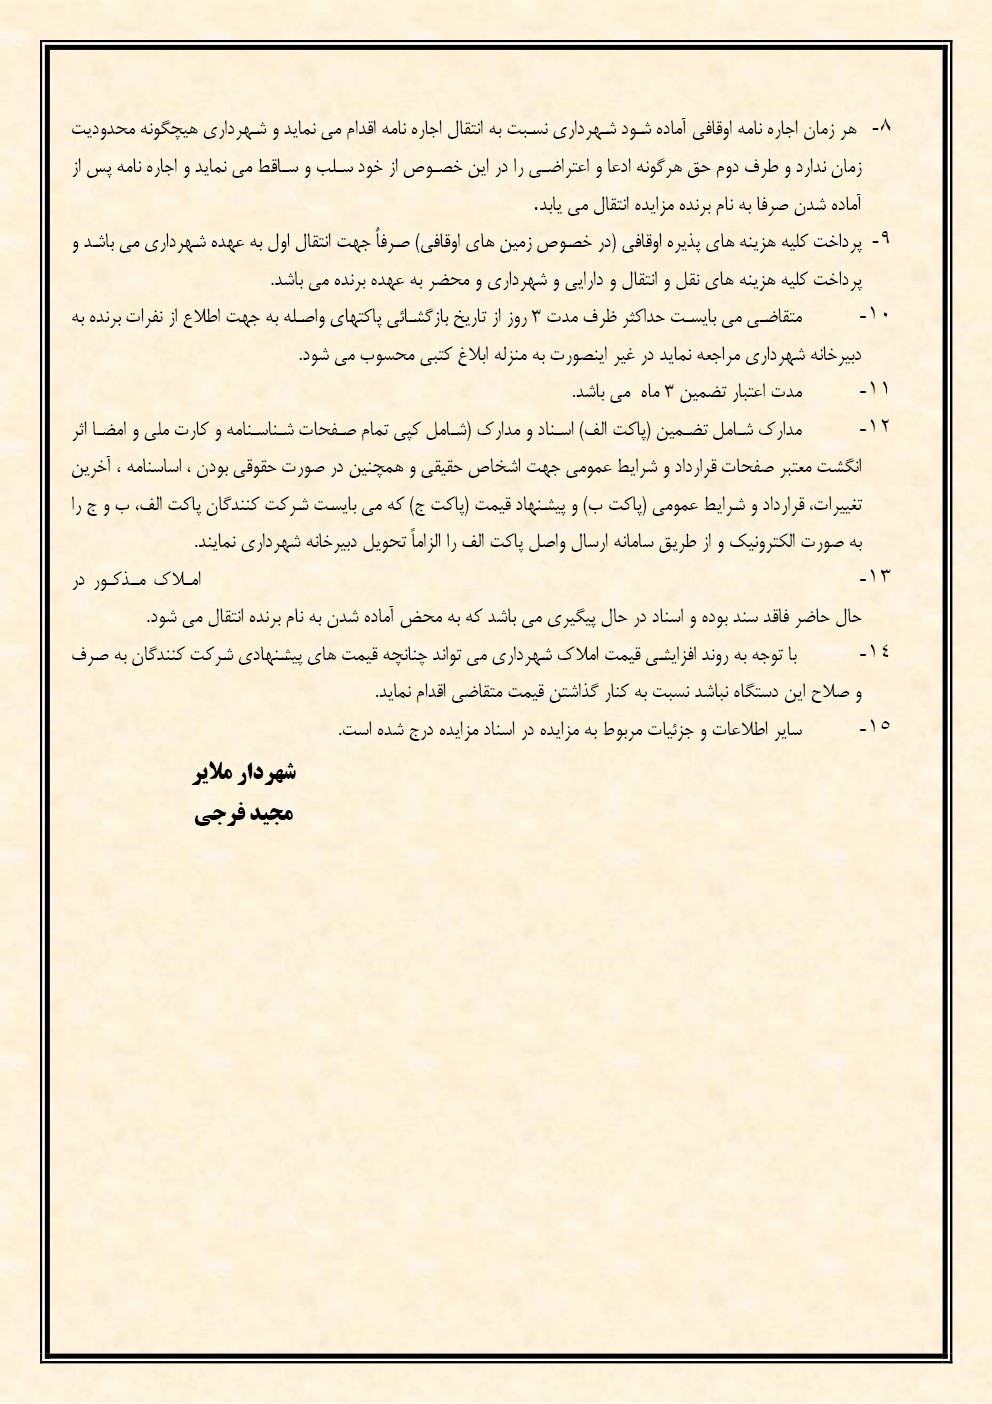 ۸- هر زمان اجاره نامه اوقافی آماده شود شهرداری نسبت به انتقال اجاره نامه اقدام می نماید و شهرداری هیچگونه محدودیت
زمان ندارد و طرف دوم حق هرگونه ادعا و اعتراضی را در این خصوص از خود سلب و ساقط می نماید و اجاره نامه پس از
آماده شدن صرفا به نام برنده مزایده انتقال می یابد.
۹- پرداخت کلیه هزینه های پذیره اوقافی (در خصوص زمین های اوقافی) صرفاً جهت انتقال اول به عهده شهرداری می باشد و
پرداخت کلیه هزینه های نقل و انتقال و دارایی و شهرداری و محضر به عهده برنده می باشد.
۱۰- متقاضی می بایست حداکثر ظرف مدت ۳ روز از تاریخ بازگشائی پاکتهای واصله به جهت اطلاع از نفرات برنده به
دبیرخانه شهرداری مراجعه نماید در غیر اینصورت به منزله ابلاغ کتبی محسوب می شود.
۱۱- مدت اعتبار تضمین ۳ ماه می باشد.
۱۲- مدارک شامل تضمین (پاکت الف) اسناد و مدارک (شامل کپی تمام صفحات شناسنامه و کارت ملی و امضا اثر
انگشت معتبر صفحات قرارداد و شرایط عمومی جهت اشخاص حقیقی و همچنین در صورت حقوقی بودن ، اساسنامه ، آخرین
تغییرات، قرارداد و شرایط عمومی (پاکت ب) و پیشنهاد قیمت (پاکت ج) که می بایست شرکت کنندگان پاکت الف، ب و ج را
به صورت الکترونیک و از طریق سامانه ارسال واصل پاکت الف را الزاماً تحویل دبیرخانه شهرداری نمایند.
۱۳- املاک مذکور در
حال حاضر فاقد سند بوده و اسناد در حال پیگیری می باشد که به محض آماده شدن به نام برنده انتقال می شود.
۱٤- با توجه به روند افزایشی قیمت املاک شهرداری می تواند چنانچه قیمت های پیشنهادی شرکت کنندگان به صرف
و صلاح این دستگاه نباشد نسبت به کنار گذاشتن قیمت متقاضی اقدام نماید.
۱۵- سایر اطلاعات و جزئیات مربوط به مزایده در اسناد مزایده درج شده است.
شهردار ملایر
مجید فرجی